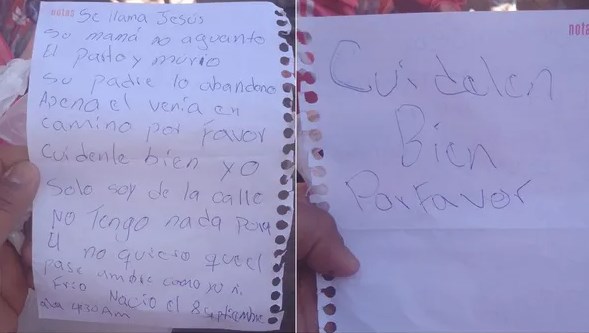 notas
Se llama Jesús
su mamá no aguanto
El parto y murio
su padre lo abandono
Apena el venia en
camino por Favor
Cuidenle bien yo
Solo soy de la calle
NO Tengo nada para
él no quiero que el
pase ambre como yo ni
Frio Nacio el 8 septiembre
a la 4:30 am
notas
Cuidelen
Bien
Por Favor